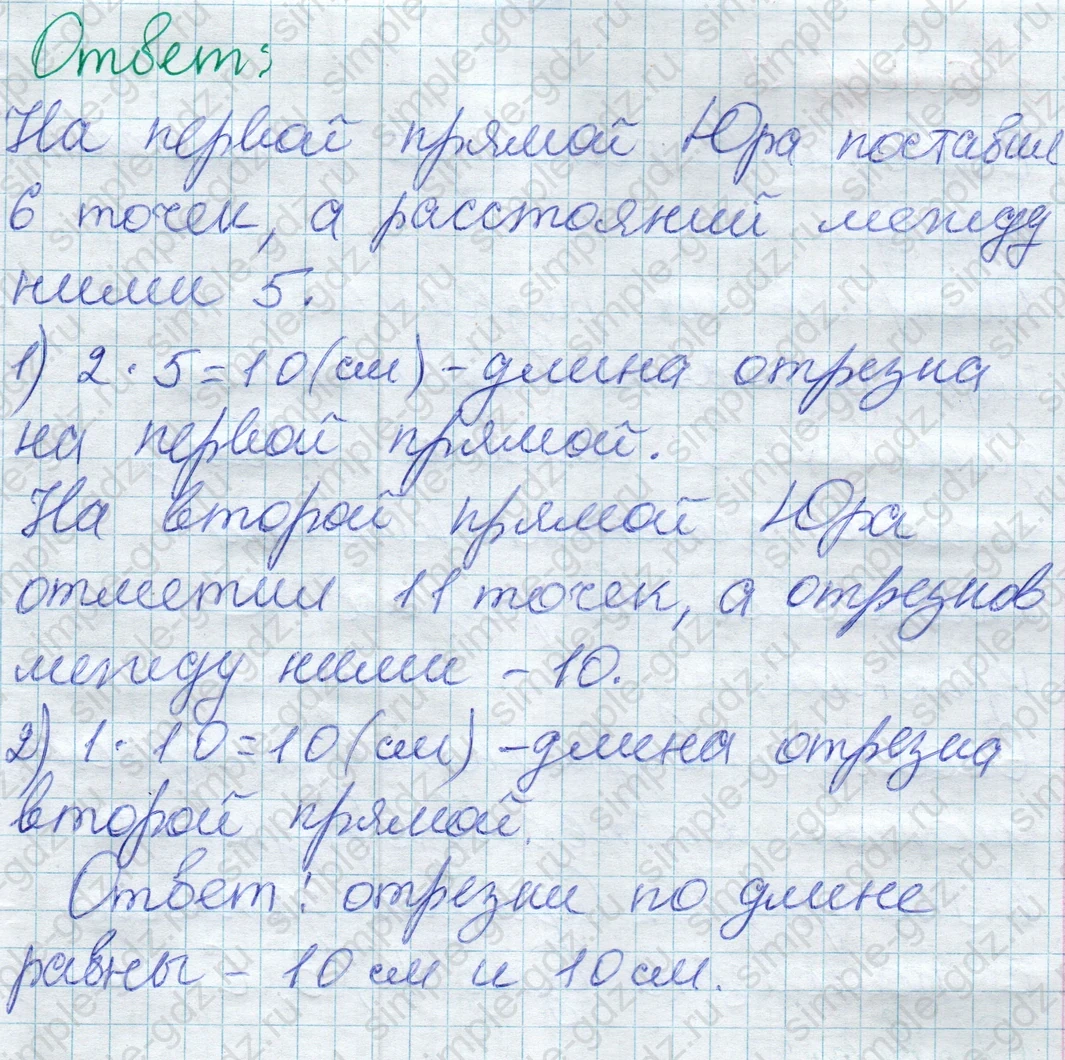 Ответ:
На первой прямой Юра поставил
6 точек, а расстояний между
ними 5.
1) 2 · 5 = 10 (см) - длина отрезка
на первой прямой.
На второй прямой Юра
отметил 11 точек, а отрезков
между ними - 10.
2) 1 · 10 = 10 (см) - длина отрезка
второй прямой.
Ответ: отрезки по длине
равны - 10 см и 10 см.
simple-gdz.ru